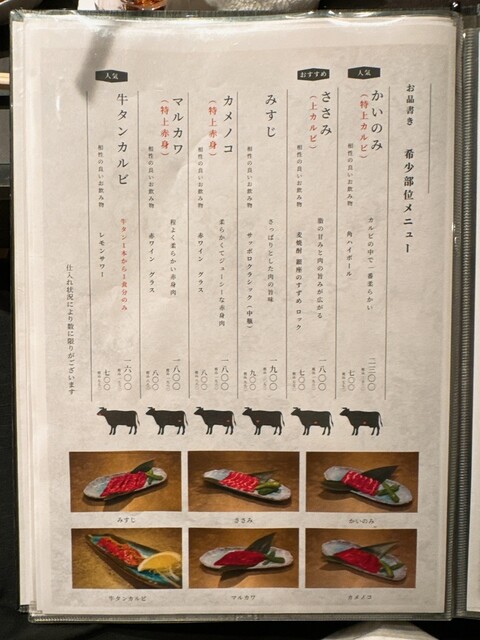 お品書き　希少部位メニュー
人気
かいのみ
（特上カルビ）
カルビの中で一番柔らかい
二三〇〇
相性の良いお飲み物
角ハイボール
七〇〇
おすすめ
ささみ
（上カルビ）
脂の甘みと肉の旨みが広がる
一八〇〇
相性の良いお飲み物
麦焼酎 銀座のすずめ ロック
七〇〇
みすじ
さっぱりとした肉の旨味
一九〇〇
相性の良いお飲み物
サッポロクラシック（中瓶）
九〇〇
カメノコ
（特上赤身）
柔らかくてジューシーな赤身肉
一八〇〇
相性の良いお飲み物
赤ワイン　グラス
八〇〇
マルカワ
（特上赤身）
程よく柔らかい赤身肉
一八〇〇
相性の良いお飲み物
赤ワイン　グラス
八〇〇
人気
牛タンカルビ
牛タン1本から1食分のみ
一六〇〇
相性の良いお飲み物
レモンサワー
七〇〇
仕入れ状況により数に限りがございます
みすじ
ささみ
かいのみ
牛タンカルビ
マルカワ
カメノコ